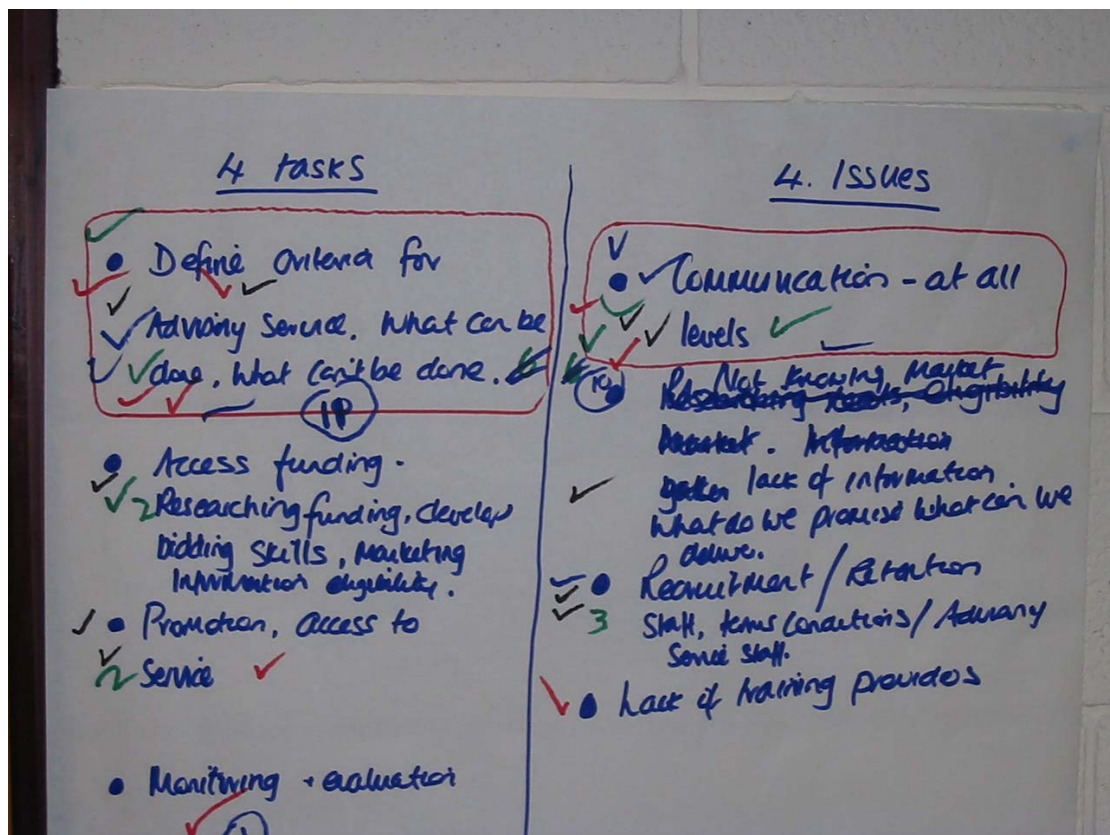 4 tasks
• Define criteria for
Advisory Service. What can be
done, what can't be done.
1P
• Access funding.
2 Researching funding, develop
bidding skills, marketing
information eligibility.
• Promotion, access to
2 Service
• Monitoring + evaluation
4. Issues
• Communication - at all
levels
Not knowing market
• Researching needs, eligibility
market. Information
lack of information
What do we promise what can we
deliver.
• Recruitment / Retention
3 Staff, terms conditions / Advisory
Service staff.
• Lack of training providers